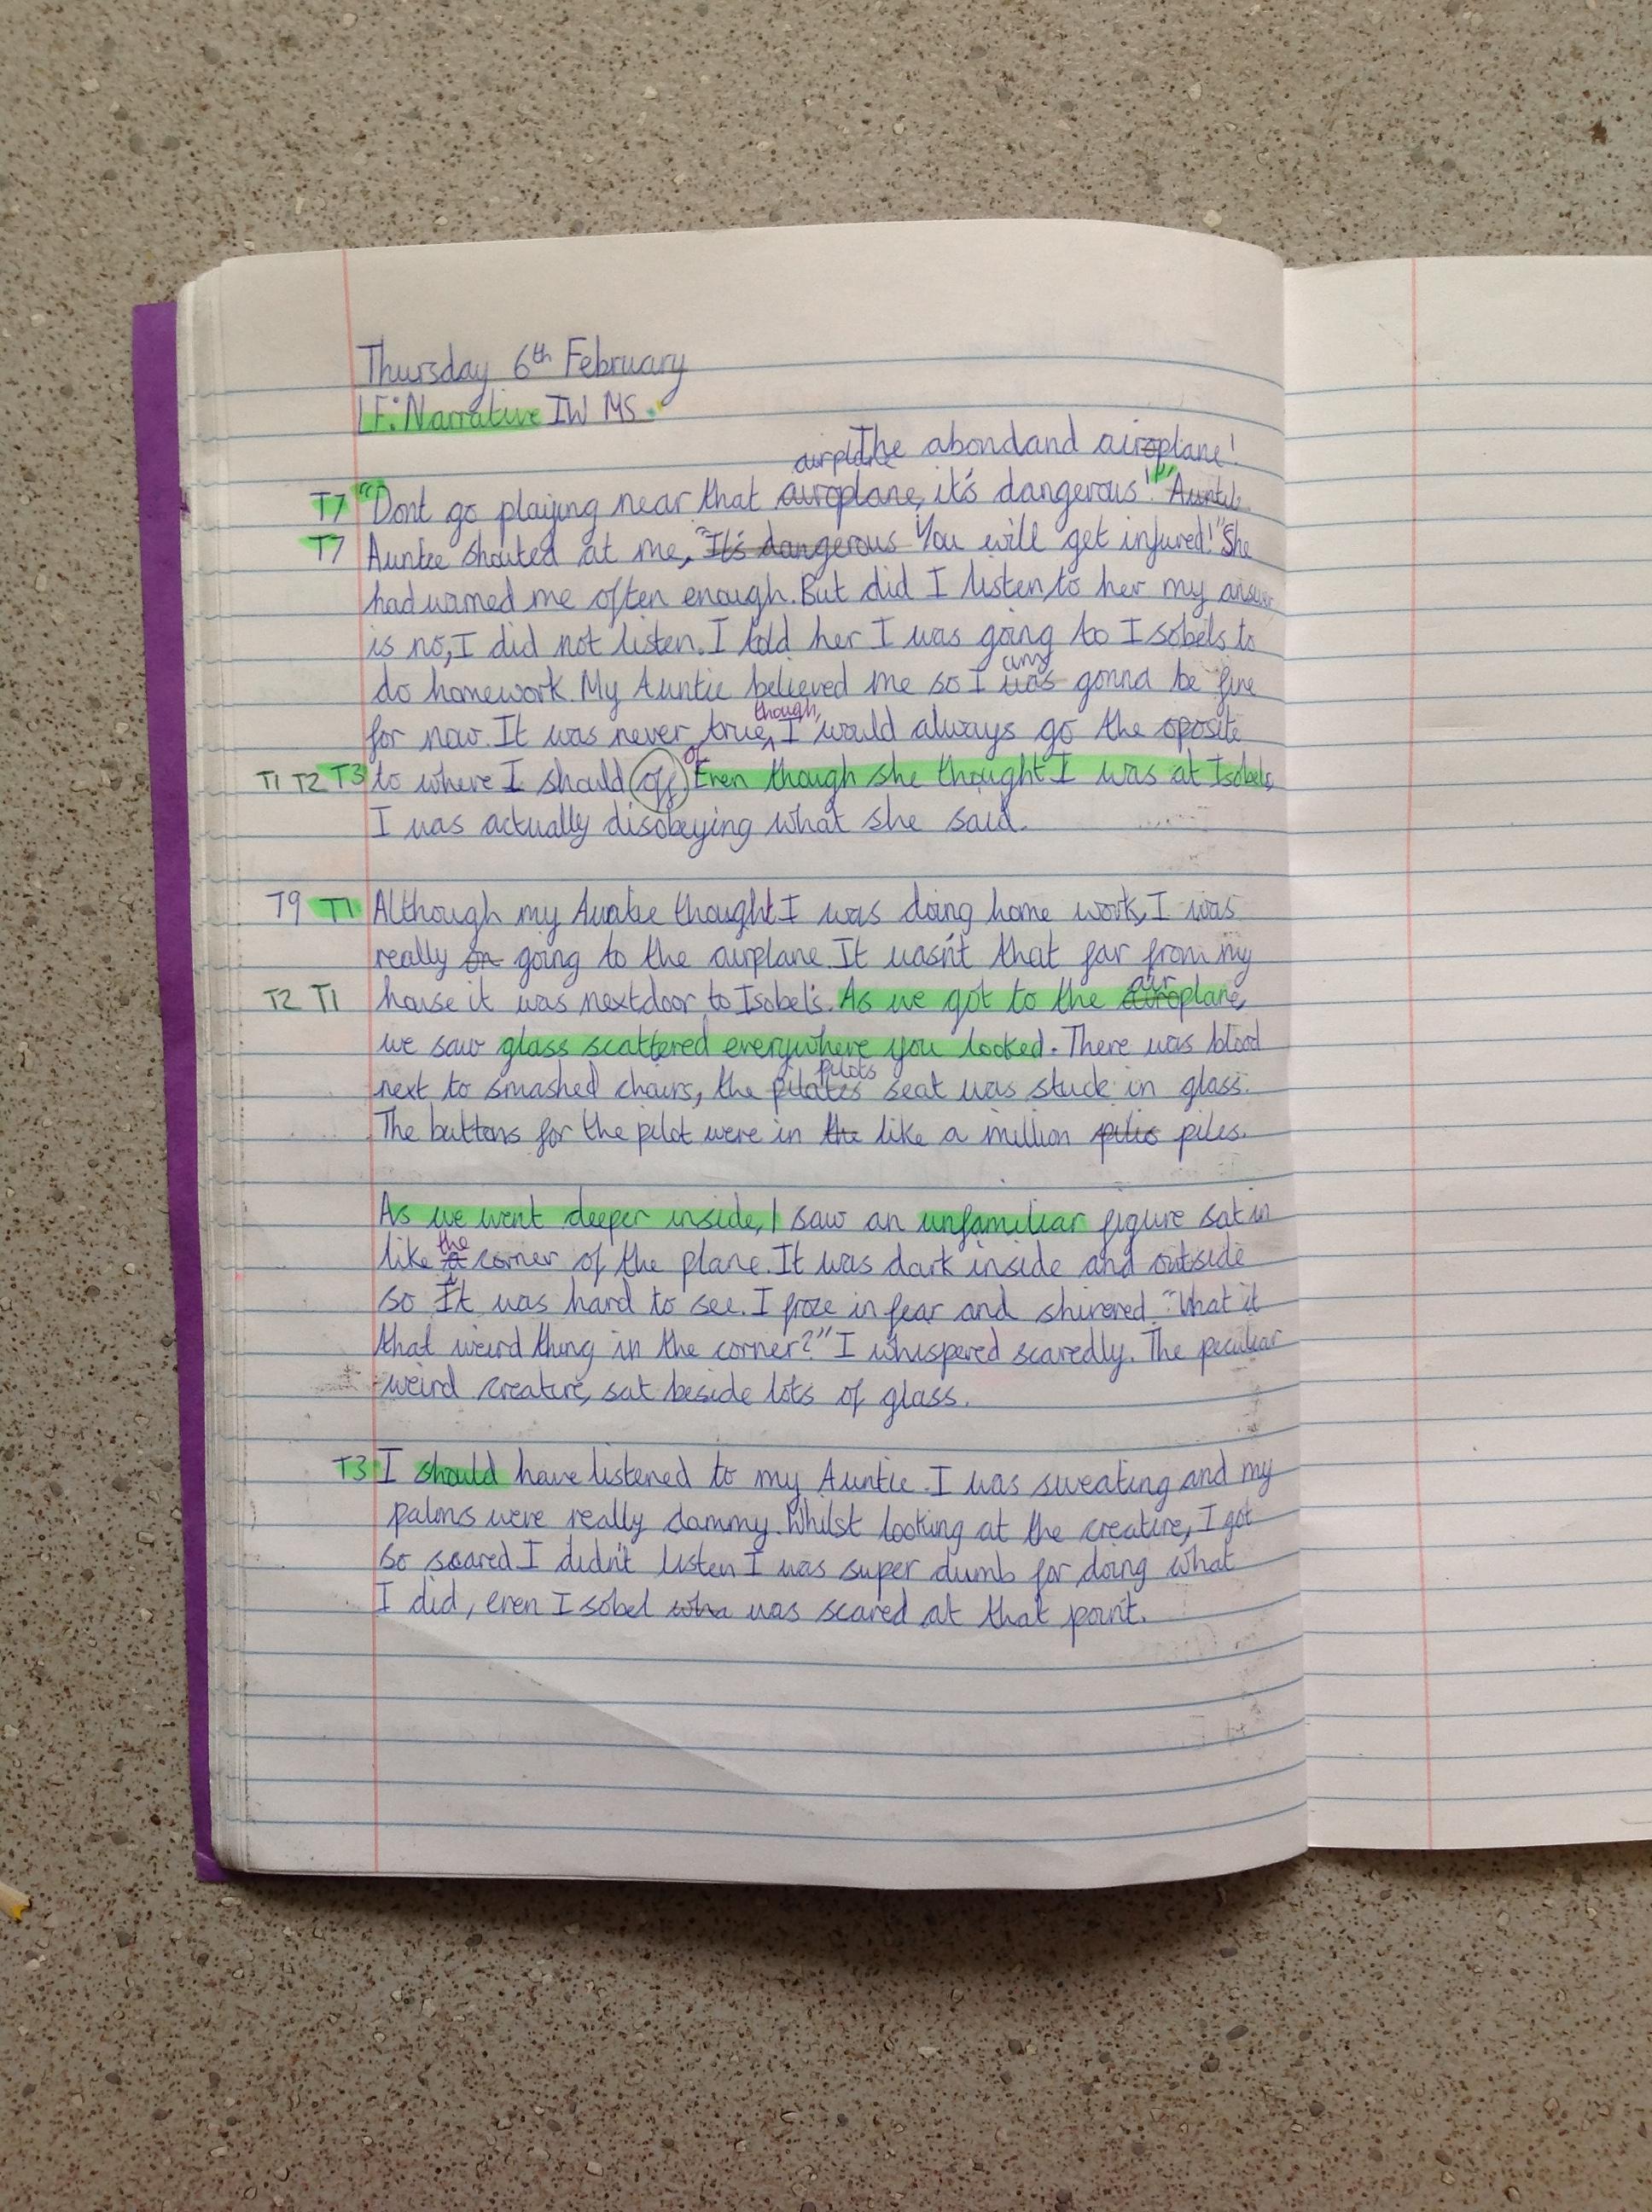 Thursday 6th February
LF: Narrative IW MS.
The abondand airoplane!
airplane
T7 "Dont go playing near that airoplane, it's dangerous!" "Auntie
T7 Auntie shouted at me, "It's dangerous You will get injured!" She
had warned me often enough. But did I listen to her my answer
is no, I did not listen. I told her I was going to Isobels to
am
do homework. My Auntie believed me so I was gonna be fine
though,
for now. It was never true, I would always go the oposite
T1 T2 T3 to where I should off. Even though she thought I was at Isobels,
I was actually disobeying what she said.
T9 T1 Although my Auntie thought I was doing home work, I was
really on going to the airplane. It wasn't that far from my
air
T2 T1 house it was nextdoor to Isobel's. As we got to the airoplane,
we saw glass scattered everywhere you looked. There was blood
pilots
next to smashed chairs, the pilates seat was stuck in glass.
The buttons for the pilot were in the like a million pilio piles.
As we went deeper inside, I saw an unfamiliar figure sat in
the
like a corner of the plane. It was dark inside and outside
so It was hard to see. I froze in fear and shivered. "What it
that weird thing in the corner?" I whispered scaredly. The peculiar
weird creature, sat beside lots of glass.
T3 I should have listened to my Auntie. I was sweating and my
palms were really clammy. Whilst looking at the creature, I got
so scared I didn't listen I was super dumb for doing what
I did, even Isobel who was scared at that point.